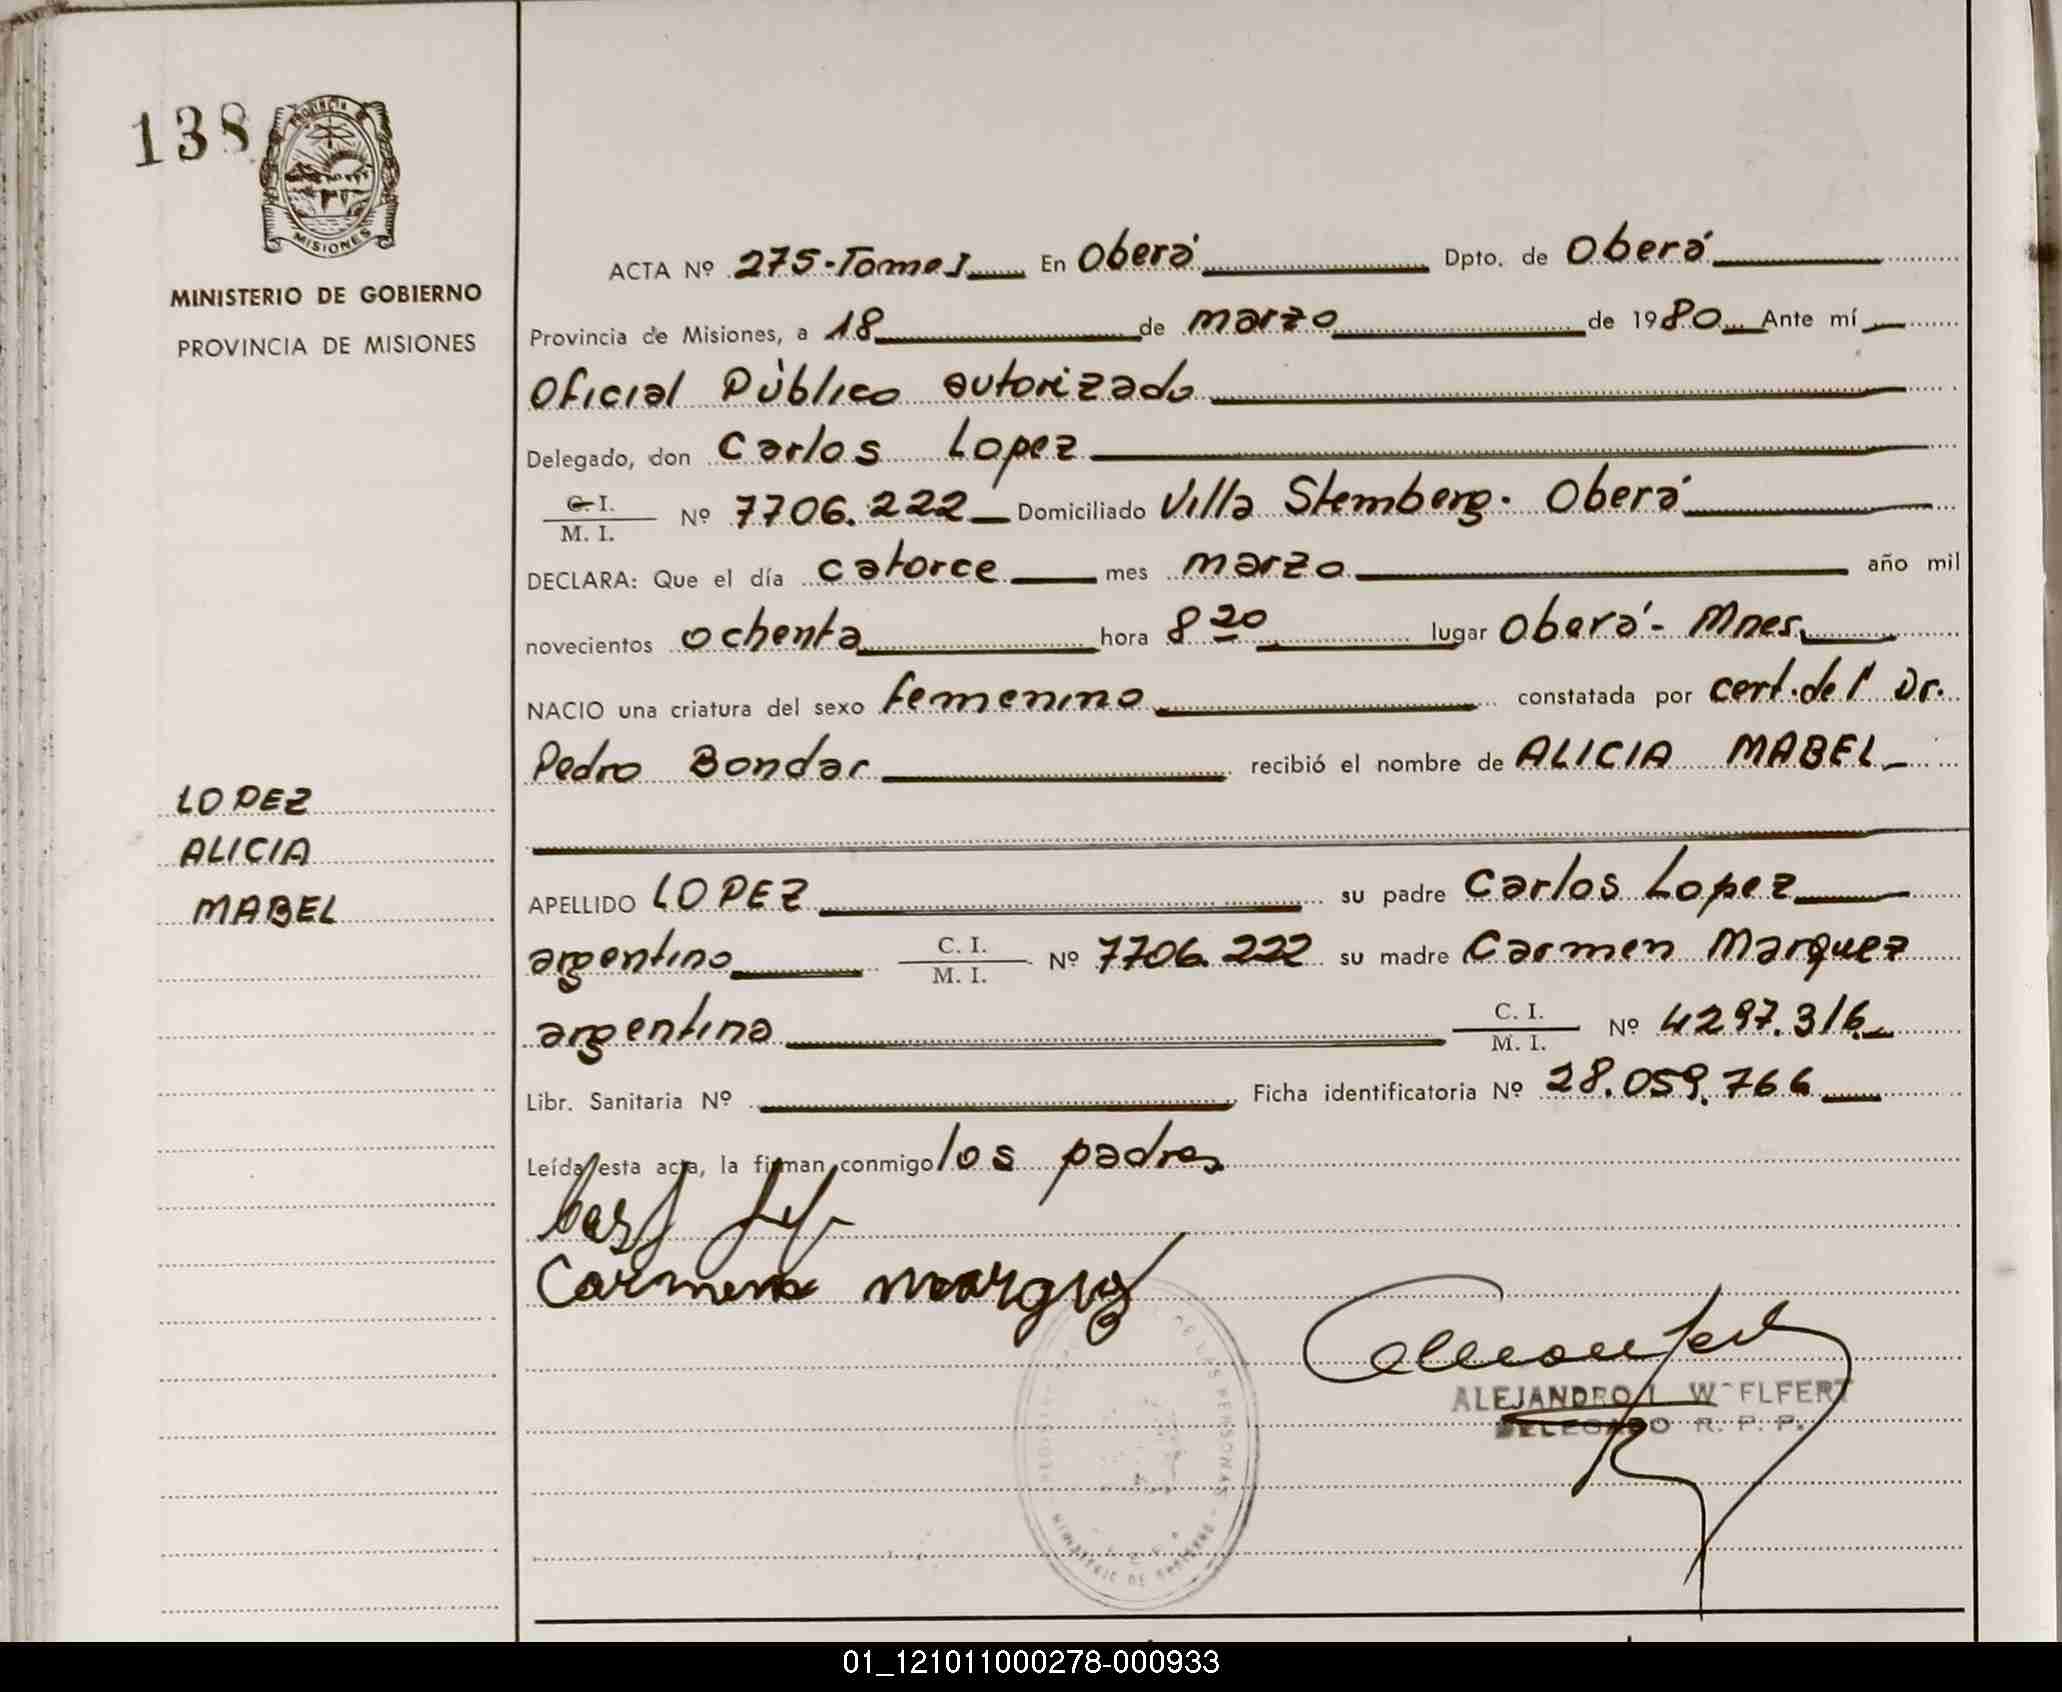 138
PROVINCIA
MISIONES
MINISTERIO DE GOBIERNO
PROVINCIA DE MISIONES
ACTA Nº 275-Tomo I En Oberá Dpto. de Oberá
Provincia de Misiones, a 18 de marzo de 1980 Ante mí
Oficial Público autorizado
Delegado, don Carlos Lopez
C. I.
M. I. Nº 7706.222 Domiciliado Villa Stemberg. Oberá
DECLARA: Que el día catorce mes marzo año mil
novecientos ochenta hora 8 20 lugar Oberá - Mnes.
NACIO una criatura del sexo femenino constatada por cert. del Dr.
Pedro Bondar recibió el nombre de ALICIA MABEL
LOPEZ
ALICIA
MABEL
APELLIDO LOPEZ su padre Carlos Lopez
argentino C. I. M. I. Nº 7706.222 su madre Carmen Marquez
argentina C. I. M. I. Nº 4297.316
Libr. Sanitaria Nº Ficha identificatoria Nº 28.059.766
Leída esta acta, la firman conmigo los padres
Carmen
DE LAS PERSONAS
MINISTERIO DE GOBIERNO
ALEJANDRO L W FLFERT
DELEGADO R. P. P.
01_121011000278-000933